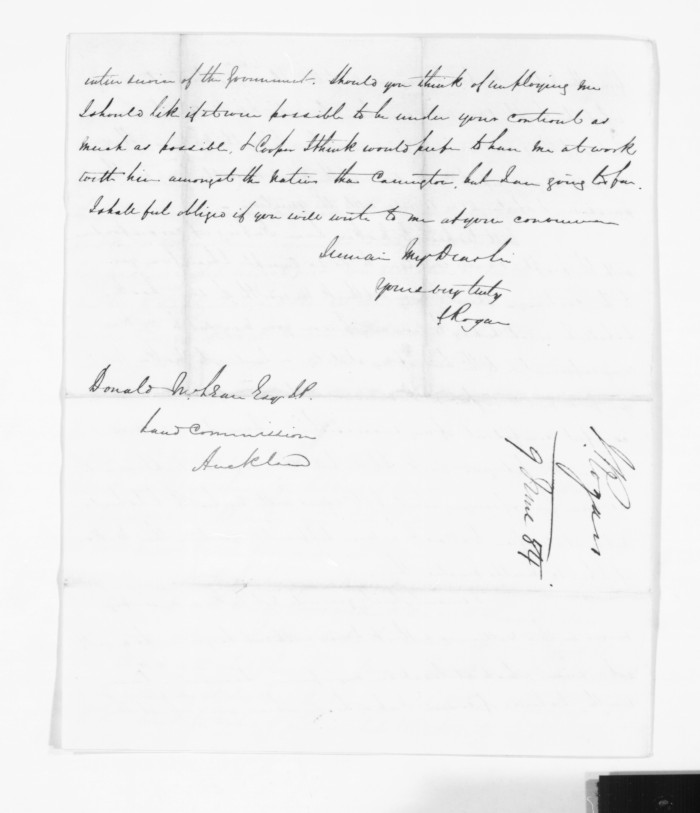 enter service of the Government. Should you think of employing me
I should like if it were possible to be under your controul as
much as possible, & Cooper I think would prefer to have me at work
with him amongst the natives than Carrington, but I am going too far.
I shall feel obliged if you will write to me at your convenience
I remain My Dear Sir
Yours very truly
J Rogan
Donald McLean Esqr J.P.
Land Commission
Auckland
Rogan
9 June 54